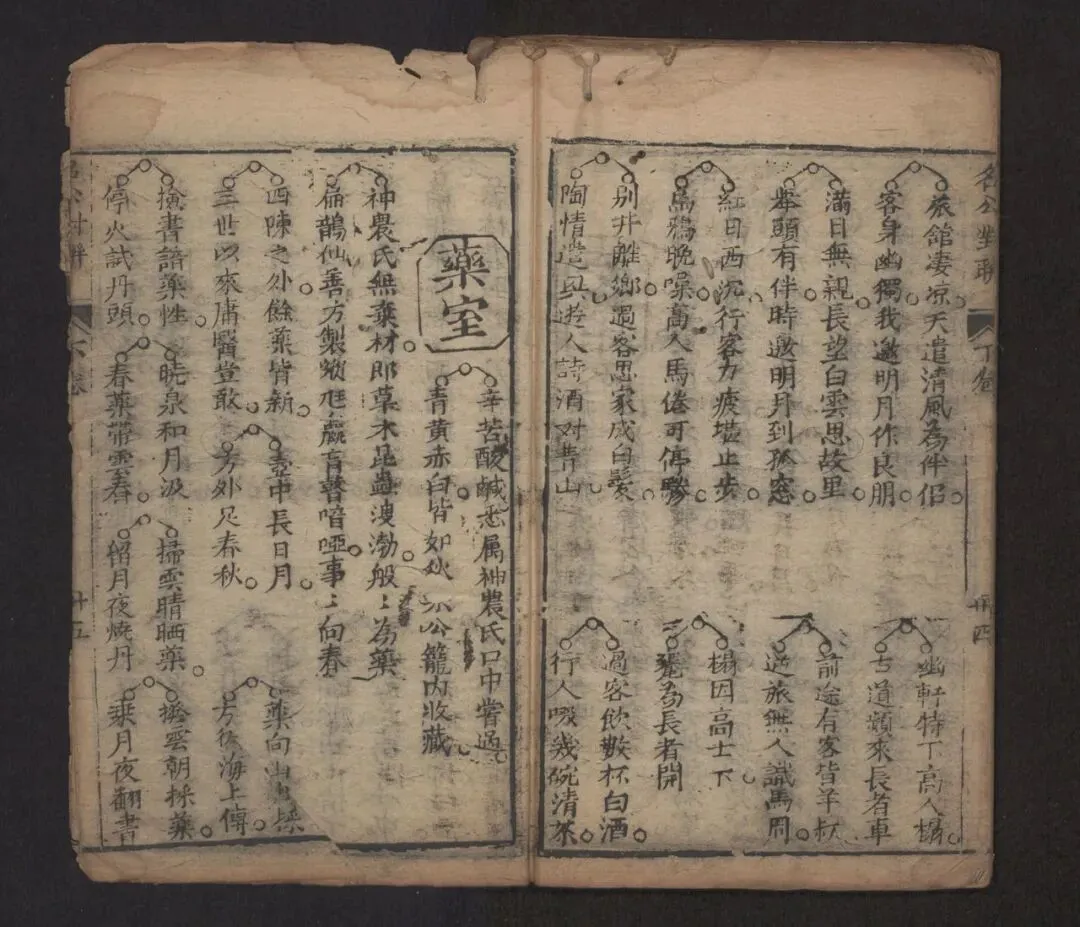 名公對聯
旅館淒凉天遣清風為伴侶
客身幽獨我邀明月作良朋
滿目無親長望白雲思故里
舉頭有伴時邀明月到孤窓
紅日西沉行客力疲堪止步
烏鴉晚噪萬人馬倦可停驂
別井離鄉過客思家成白髪
陶情遣興遊人詩酒对青山
幽軒特下高人榻
古道頻來長者車
前途有客皆羊叔
逆旅無人識馬周
榻因高士下
為長者開
過客飲數杯白酒
行人啜幾碗清茶
卅四
藥室
辛苦酸鹹悉属神農氏口中嘗過
青黄赤白皆如狄公籠内收藏
神農氏無棄材即草木昆蟲溲渤般〻為藥
扁鵲仙善方製欬尫羸盲聾喑啞事〻向春
四陳之外餘藥皆新
三世以來庸醫豈敢
壺中長日月
方外足春秋
藥向山中採
方從海上傳
撿書諳藥性
停火試丹頭
曉泉和月汲
春藥帶雲舂
掃雲晴晒藥
留月夜燒丹
披雲朝採藥
乗月夜翻書
十五